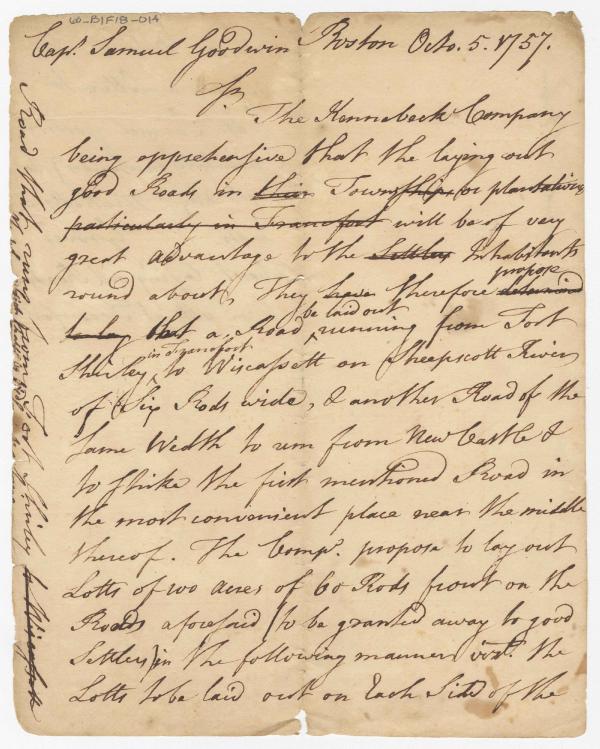 60-B1F18-014
Capt. Samuel Goodwin Boston Octo. 5. 1757.
Sr.
The Kennebeck Company
being apprehensive that the laying out
good Roads in their Townships or plantations
particularly in Francfort will be of very
great advantage to the Settlers Inhabitants
round about, They have therefore determined propose
to lay that a Road be laid out running from Fort
Shirley in Francfort to Wiscassett on Sheepscott River
of Six Rods wide, & another Road of the
Same Wedth to run from New Castle &
to strike the first mentioned Road in
the most convenient place near the middle
thereof. The Compy. propose to lay out
Lotts of 100 acres of 60 Rods front on the
Roads aforesaid (to be granted away to good
Settlers) in the following manner vizt. the
Lotts to be laid out on Each Side of the
Road that runs from Fort Shirley to Wiscassett